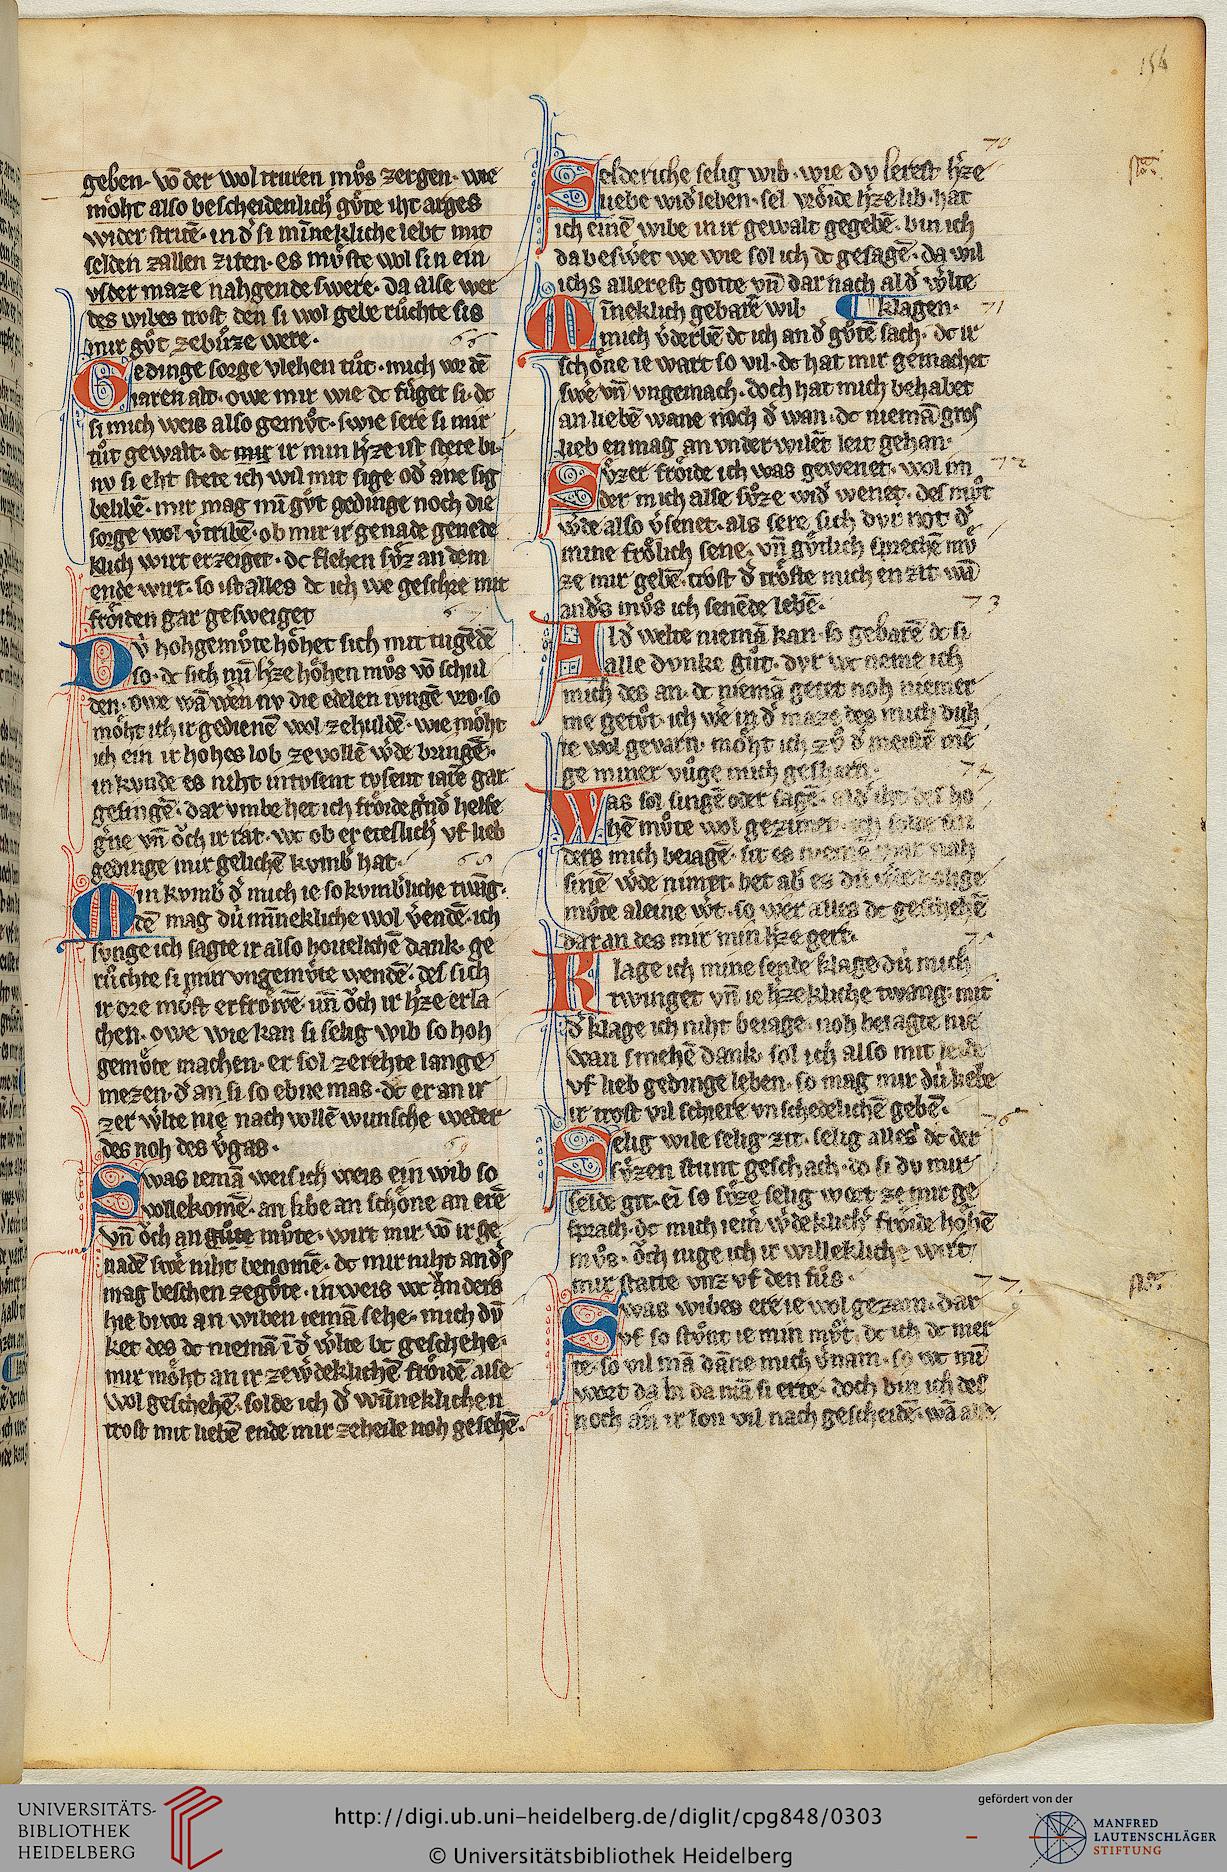 154
geben· vō der wol truren mvͦs zergen· wie
moͤht also bescheidenlich guͤte iht arges
wider strite· in d' si mīnekliche lebt mit
selden zallen ziten· es mvͤste wol sin ein
vsder maze nahgende swere· da alse wer
des wibes trost den si wol gebe rvͦchte sis
mir gvͦt zebvͤrze were·
66
Gedinge sorge vlehen tvͦt· mich vor dē
iaren alt· owe mir wie dc fuͤget si· dc
si mich weis also gemvͦt· swie sere si mir
tvͦt gewalt· dc mir ir min h'ze ist stete bi·
nv si eht stete ich wil mit sige od' ane sig
belibē· mir mag mī gvͦt gedinge noch die
sorge wol v'tribē· ob mir ir genade genede
klich wirt erzeiget· dc flehen svͤz an dem
ende wirt· so ist alles dc ich we geschre mit
froͤiden gar gesweiget
67
Dv̍ hohgemvͤte hoͤhet sich mit tugēdē
so· dc sich mī h'ze hoͤhen mvͦs vō schul
den· owe wā wēn nv die edelen ivngē vro· so
moͤht ich ir gedienē wol zehuldē· wie moͤht
ich ein ir hohes lob ze vollē w'de bringē·
in kvnde es niht in tvsent tvsent iarē gar
gesingē· dar vmbe het ich froͤide gn'd helfe
g'ne vn̄ oͮch ir rat· wc ob er eteslich' vf lieb
gedinge mir gelichē kvmb' hat·
68
Min kvmb' d' mich ie so kvmb'liche twāg·
tē mag dū mīnekliche wol v'endē· ich
svnge ich sagte ir also houelichē dank· ge
rvͦchte si mir vngemvͤte wendē· des sich
ir ore moͤst erfroͤwē· un̄ oͮch ir h'ze erla
chen· owe wie kan si selig wib so hoh
gemvͤte machen· er sol zerehte lange
mezen· d' an si so ebne mas· dc er an ir
zer w'lte nie nach vollē wunsche weder
des noh des v'gas·
69
Swas iemā weis ich weis ein wib so
vollekomē· an libe an schoͤne an erē
vn̄ oͮch an guͤte mvͤte· wirt mir vō ir ge
nadē swe niht benomē· dc mir niht and's
mag beschen zegvͤte· in weis wc anders
hie bivor an wiben iemā sehe· mich dv̄
ket des dc niemā ī d' w'lte bc geschehe·
mir moͤht an ir zew'deklichē froͤidē alse
wol geschehē· solde ich d' wūneklichen
trost mit liebē ende mir zeheile noh gesehē·
70
Selderiche selig wib· wie dv lerest h'ze
liebe wid' leben· sel vroͤide h'ze lib· hat
ich einē wibe in ir gewalt gegebē· bin ich
da beswēt we wie sol ich dc gesagē· da wil
ichs allerest gotte vn̄ dar nach al d' w'lte
klagen·
71
Mīneklich gebarē wil
mich v'derbē dc ich an d' gvͤtē sach· dc ir
schoͤne ie wart so vil· dc hat mir gemachet
swe vn̄ vngemach· doch hat mich behabet
an liebē wane noch d' wan· dc niemā gros
lieb en mag an vnder wilēt leit gehan·
72
Svͤzer froͤide ich was gewenet· wol im
der mich alse svͤze wid' wenet· des mvͦt
w'de also v'senet· als sere sich dvr not d'
mine froͤlich sene· vn̄ gvͤtlich sprechē mvͤ
ze mir gebē· trost d' troͤste mich en zit wā
and's mvͦs ich senēde lebē·
73
Al d' welte niemā kan· so gebarē dc si
alle dvnke gvͦt· dvr wc neme ich
mich des an· dc niemā getet noh niemer
me getvͦt· ich we in d' maze des mich duh
te wol gevarn· moͤht ich zvͦ d' meistē mē
ge miner vuͦge mich
74
Was sol singē oder sagē· al d' iht des ho
hē mvͤte wol gezimet·
ders mich beiagē· sit es
sinē w'de nimet· het ab' es dū
mvͤte aleine w't· so wer alles dc geschehē
dar an des mir min h'ze gert·
75
Klage ich mine sende klage dū mich
twinget vn̄ ie h'zekliche twang· mit
d' klage ich niht beiage· noh beiagte nie
wan smehē dank· sol ich also mit leide
vf lieb gedinge leben· so mag mir dū liebe
ir trost vil schiere vnschedelichē gebē·
76
Selig wile selig zit· selig alles dc der
svͤzen stunt geschach· do si dv mir
selde git· ei so svͤze selig wort ze mir ge
sprach· dc mich iem' w'deklich' froͤide hoͤhē
mvͦs· oͮch nige ich ir willekliche wirt
mir statte vnz vf den fuͦs·
77.
Swas wibes ere ie wol gezam· dar
vf so stvͦnt ie min mvͦt· dc ich dc mer
te· so vil mā dāne mich v'nam· so wc mī
wort da bi da mā si erte· doch bin ich des
noch an ir lon vil nach gescheidē· wā als
UNIVERSITÄTS-
BIBLIOTHEK
HEIDELBERG
http://digi.ub.uni-heidelberg.de/diglit/cpg848/0303
© Universitätsbibliothek Heidelberg
gefördert von der
MANFRED
LAUTENSCHLÄGER
STIFTUNG